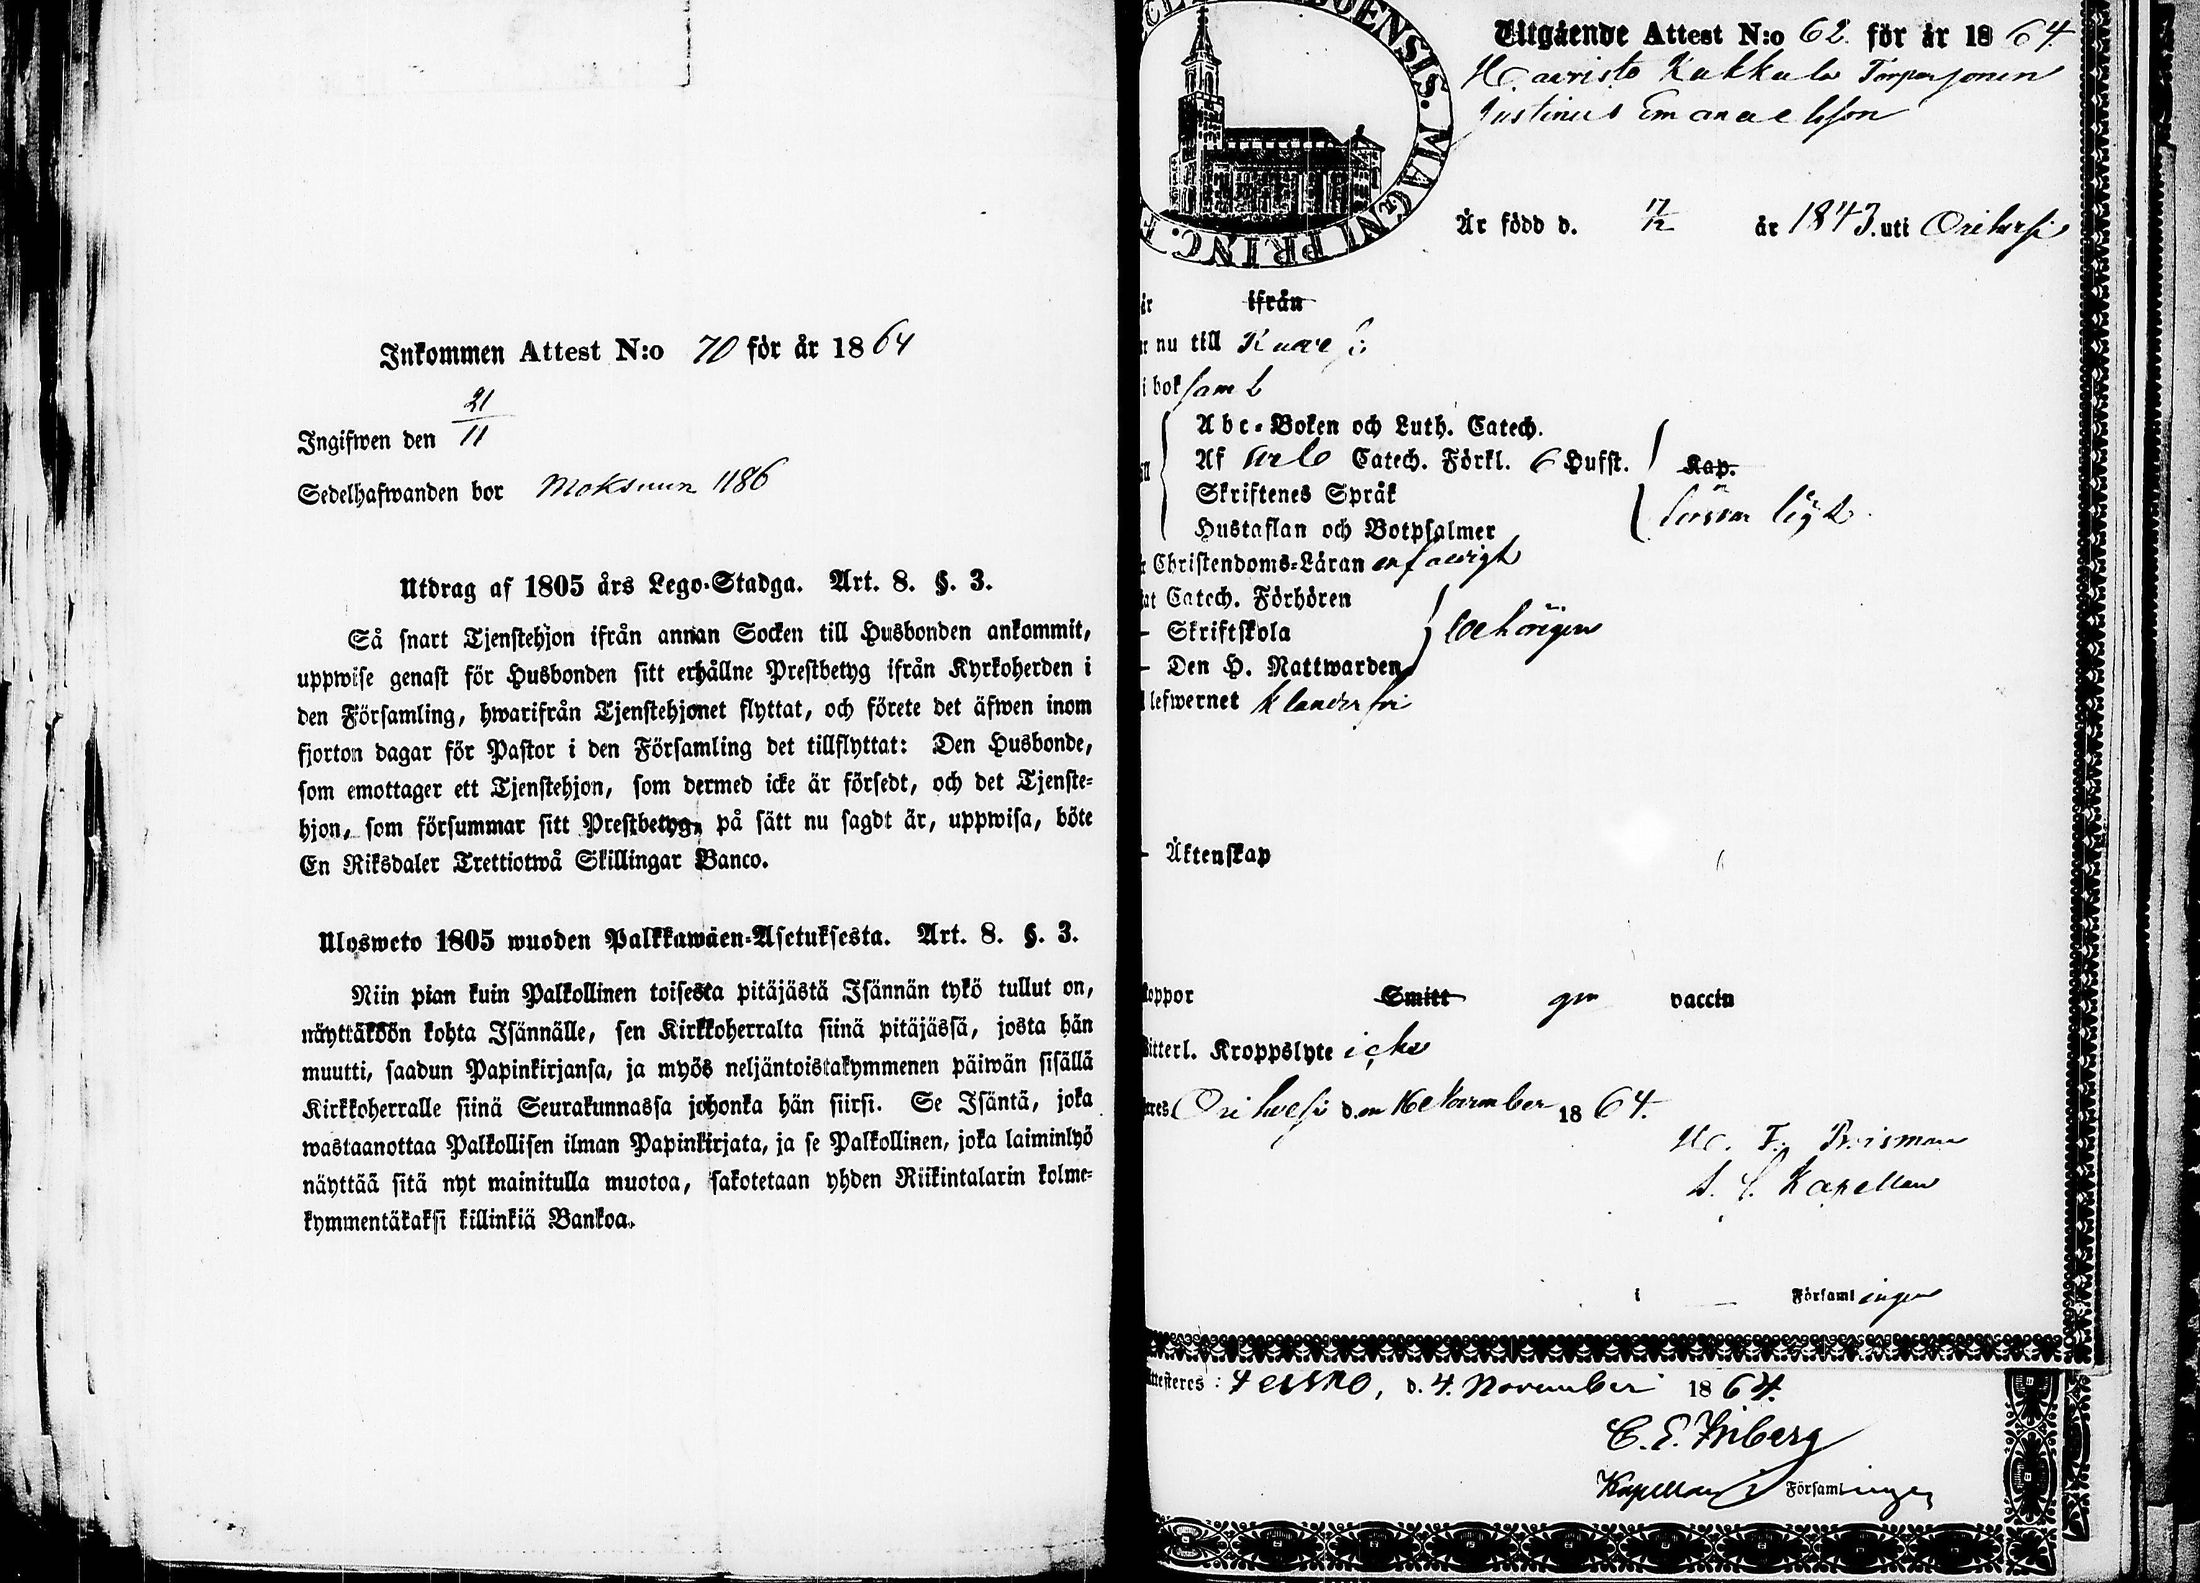 Inkommen Attest N:o 70 för år 1864
Ingifwen den 21/11
Sedelhafwanden bor Moksuun 1186
Utdrag af 1805 års Lego-Stadga. Art. 8. §. 3.
Så snart Tjenstehjon ifrån annan Socken till Husbonden ankommit,
uppwise genast för Husbonden sitt erhållne Prestbetyg ifrån Kyrkoherden i
den Församling, hwarifrån Tjenstehjonet flyttat, och förete det äfwen inom
fjorton dagar för Pastor i den Församling det tillflyttat: Den Husbonde,
som emottager ett Tjenstehjon, som dermed icke är försedt, och det Tjenste-
hjon, som försummar sitt Prestbetyg, på sätt nu sagdt är, uppwisa, böte
En Riksdaler Trettiotwå Skillingar Banco.
Ulosweto 1805 wuoden Palkkawäen-Asetuksesta. Art. 8. §. 3.
Niin pian kuin Palkollinen toisesta pitäjästä Isännän tykö tullut on,
näyttäköön kohta Isännälle, sen Kirkkoherralta siinä pitäjässä, josta hän
muutti, saadun Papinkirjansa, ja myös neljäntoistakymmenen päiwän sisällä
Kirkkoherralle siinä Seurakunnassa johonka hän siirsi. Se Isäntä, joka
wastaanottaa Palkollisen ilman Papinkirjata, ja se Palkollinen, joka laiminlyö
näyttää sitä nyt mainitulla muotoa, sakotetaan yhden Riikintalarin kolme-
kymmentäkaksi killinkiä Bankoa.
BOENSIS. MAGNI PRINC. F
Utgående Attest N:o 62. för år 1864.
Kakkula Torparsonen
Justinus Emanuelsson
Är född d. 17/12 år 1843. uti Orihvesi
är ifrån
nu till
i bok samt
Abc-Boken och Luth. Catech.
Af Catech. Förkl. 6 Hufst. Kap.
Skriftenes Språk
Hustaflan och Botpsalmer
försvarligt
Christendoms-Läran enfaldigt
Catech. Förhören
- Skriftskola
- Den H. Nattwarden
behörigen
lefwernet klanderfri
- Äktenskap
koppor Smitt gm vaccin
itterl. Kroppslyte icke
Orihvesi den 16 November 1864.
Kapellan
i Församlingen
ttesteres: d. 4. November 1864.
C. E. Friberg
Kapellan i Församlingen